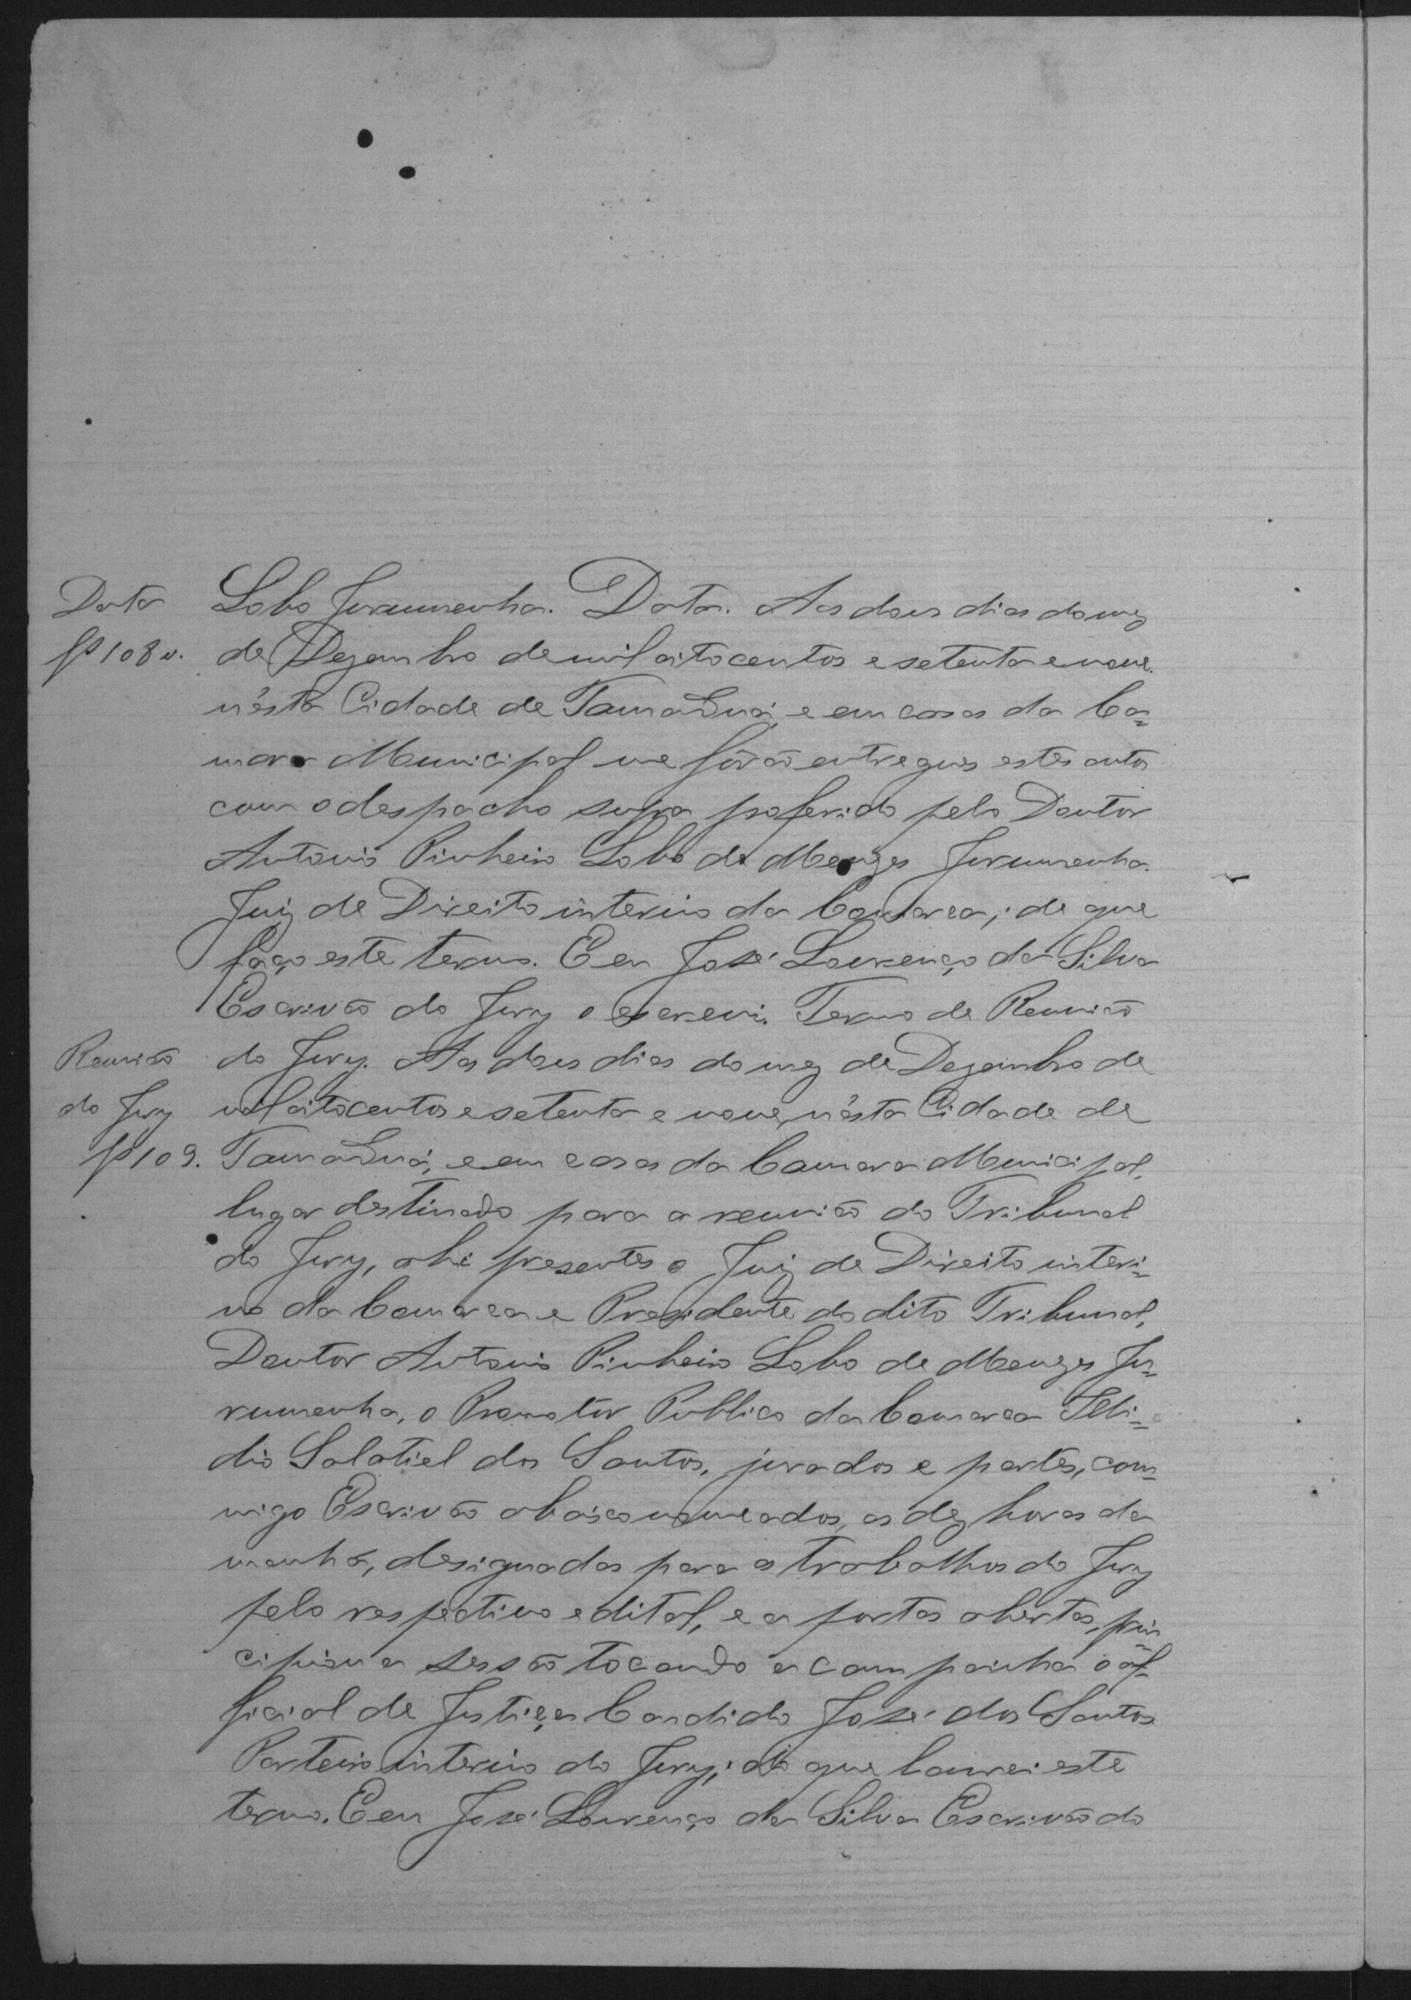 Data
fl 108 v.
Lobo Jurumenha. Data. Aos dous dias do mez
de Dezembro de mil oitocentos e setenta e nove
n'esta Cidade de Tamanduá, e em casas da Ca=
mara Municipal me fôrão entregues estes autos
com o despacho supra proferido pelo Doutor
Antonio Pinheiro Lobo de Menezes Jurumenha
Juiz de Direito interino da Comarca; de que
faço este termo. E eu José Lourenço da Silva
Escrivão do Jury o escrevi. Termo de Reunião
Reunião
do Jury
fl 109.
do Jury. Aos dous dias do mez de Dezembro de
mil oitocentos e setenta e nove, n'ésta Cidade de
Tamanduá, e em casas da Camara Municipal,
lugar destinado para a reunião do Tribunal
do Jury, ahi presentes o Juiz de Direito interi=
no da Comarca e Presidente do dito Tribunal,
Doutor Antonio Pinheiro Lobo de Menezes Ju=
rumenha, o Promotor Publico da Comarca
dio Salatiel dos Santos, jurados e partes, com=
migo Escrivão abaixo nomeados, as dez horas da
manhã, designadas para os trabalhos do Jury
pelo respectivo edital, e a portas abertas, prin=
cipiou a sessão tocando a campainha o of=
ficial de Justiça Candido José dos Santos
Porteiro interino do Jury; do que lavrei este
termo. E eu José Lourenço da Silva Escrivão do